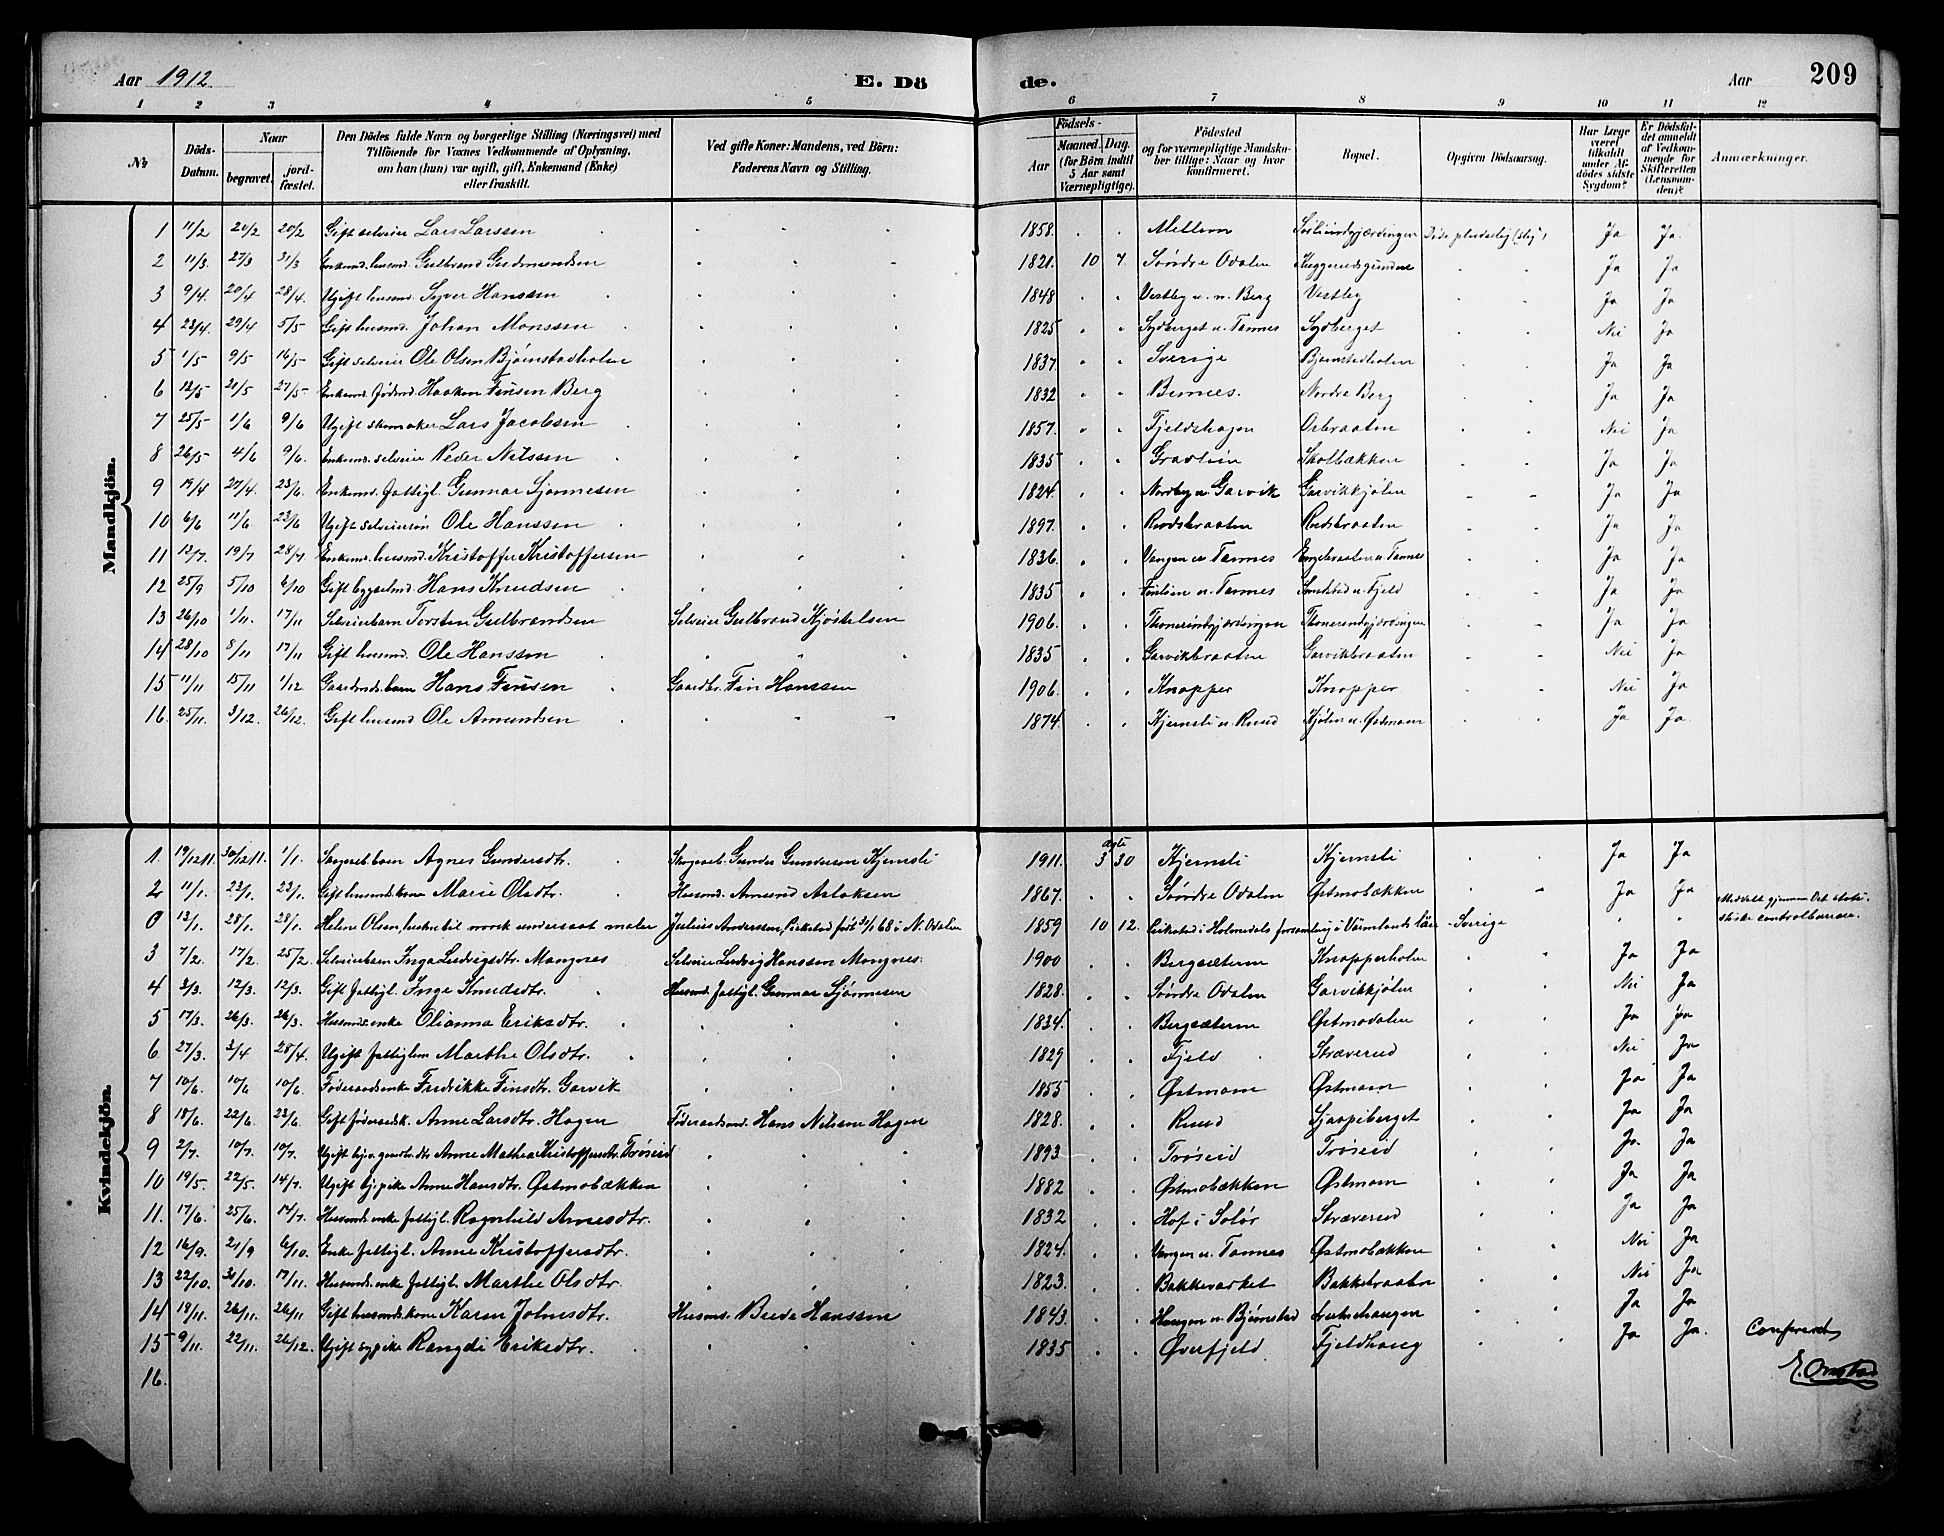 Aar 1912. E. Dö de. Aar 209
1 2 3 4 5 6 7 8 9 10 11 12
№ Döds-Datum. Naar begravet. jord-fæstet. Den Dödes fulde Navn og borgerlige Stilling (Næringsvei) med Tilföiende for Voxnes Vedkommende af Oplysning, om han (hun) var ugift, gift, Enkemand (Enke) eller fraskilt. Ved gifte Koner: Mandens, ved Börn: Faderens Navn og Stilling. Födsels- Aar Maaned. Dag. (for Börn indtil 5 Aar samt Værnepligtige). Födested og for værnepligtige Mandskaber tillige: Naar og hvor konfirmeret. Bopæl. Opgiven Dödsaarsag. Har Læge været tilkaldt under Afdödes sidste Sygdom? Er Dödsfaldet anmeldt af Vedkommende for Skifteretten (Lensmanden)? Anmærkninger.
Mandkjön.
1 11/2 20/2 20/2 Gift selveier Lars Larssen 1858. Mellem Ja Ja.
2 11/3. 27/3 31/3 Enkemd. husmd. Gulbrand Gudmundsen 1821. 10 7. Søndre Odalen Ja Ja
3 9/4. 20/4 28/4. Ugift husmd. Syver Hanssen 1848 Vestby u. n. Berg Vestby Ja Ja
4 23/4. 29/4 5/5 Gift husmd. Johan Monssen 1825 Sydberget u. Tannes Sydberget Nei Ja
5 1/5 9/5 16/5 Gift selveier Ole Olsen Bjørnstadholen 1837. Sverige Bjørnstadholen Ja Ja
6 12/5 21/5 27/5 Enkemd. Føderaadsmd. Haaken Finsen Berg 1832 Nordre Berg Ja Ja
7 25/5 1/6 9/6 Ugift skomaker Lars Jacobsen 1857. Fjeldshagen Nei Ja
8 26/5 4/6 9/6. Enkemd. selveier Peder Nilssen 1835 Skolbækken Ja Ja
9 19/4 27/4. 23/6. Enkemd. fattigl. Gunnar Sjønnesen 1824. Nordby u. Garvik Garvikkjølen Ja Ja
10 6/6 11/6. 23/6 Ugift selveiersøn Ole Hanssen 1897. Rudsbraaten Rudsbraaten Ja Ja
11 12/7. 19/7 28/7 Enkemd. husmd. Kristoffer Kristoffersen 1836. Vangen u. Tannes Engebraaten u. Tannes Ja Ja
12 25/9 5/10 6/10 Gift bygselmd. Hans Knudsen 1835 u. Tannes u. Fjeld Ja Ja
13 26/10 1/11. 17/11 Selveierbarn Torsten Gulbrandsen Selveier Gulbrand Kjøstelsen 1906. Ja Ja
14 28/10 8/11 17/11 Gift husmd. Ole Hanssen 1835 Garvikbraaten Garvikbraaten Nei Ja
15 11/11 15/11 1/12 Gaardmds. barn Hans Finsen Gaardbr. Fin Hanssen 1906. Knapper Knapper Nei Ja
16. 25/11. 3/12. 26/12. Gift husmd Ole Amundsen 1874. Kjernsli u. Ruud Kjølen u. Østmoen Ja Ja.
Kvindekjön.
1. 19/12 11. 30/12 11. 1/1. barn Agnes Gundersdtr. Gunder Gundersen Kjernsli 1911. 3 30 Kjernsli Kjernsli Ja Ja
2 11/1. 23/1. 23/1. Gift husmdskone Marie Olsdtr. Husmd. Amund Aslaksen 1867. Søndre Odalen Østmobækken Ja Ja
0 13/1. 28/1. 28/1. Helene Olsen, hustru til norsk undersaat maler Julius Andersen, født 30/1 68 i N. Odalen 1859 10 12. i Holmedals forsamling i Värmlands län - Sverige Meddelt gjennem Det statistiske centralbureau.
3 7/2. 17/2. 25/2. Selveierbarn Inga Ludvigsdtr. Mangnes Selveier Ludvig Hanssen Mangnes 1900 Bergsæteren Knapperholen Ja Ja
4 2/3. 12/3. 12/3. Gift fattigl. Inge Knudsdtr. Husmd. fattigl. Gunnar Sjønnesen 1828. Søndre Odalen Garvikkjølen Nei Ja
5 17/3. 26/3. 26/3. Husmds. enke Olianna Eriksdtr. 1834. Bergsæteren Østmodalen Ja Ja
6 27/3. 3/4 28/4. Ugift fattiglem Marthe Olsdtr. 1829 Fjeld Stræverud Nei Ja
7 10/6. 10/6 10/6 Føderaadsenke Fredrikke Finsdtr. Garvik 1855 Østmoen Østmoen Ja Ja
8 18/6. 22/6. 23/6. Gift føderaadsk. Anne Larsdtr. Hagen Føderaadsmd. Hans Nilsen Hagen 1828. Ruud Ja Ja
9 2/7. 10/7. 10/7. Ugift Anne Mathea Kristoffersdtr. Trøseid 1893. Trøseid Trøseid Ja. Ja
10 19/5. 22/5. 14/7. Ugift Anne Hansdtr. Østmobækken 1882 Østmobækken Østmoen Ja Ja
11. 17/6. 25/6. 14/7. Husmds. enke fattigl. Ragnhild Arnesdtr. 1832 Hof i Solør Stræverud Ja Ja
12 16/9. 21/9 6/10. Enke fattigl. Anne Kristoffersdtr. 1824. Vangen u. Tannes Østmobækken Nei Ja
13 22/10. 31/10. 17/11. Husmds. enke fattigl. Marthe Olsdtr. 1823. Bakkeværket Bakkebraaten Nei Ja
14 19/11. 26/11. 26/11 Gift husmdskone Karen Johnsdtr. Husmd. Brede Hanssen 1843. Haugen u. Bjørnstad Ja Ja
15 9/11. 22/11. 26/12. Ugift sypike Rangdi Eriksdtr. 1835 Øverfjeld Fjeldhaug Ja Ja. Confereret
16. E. Onstad